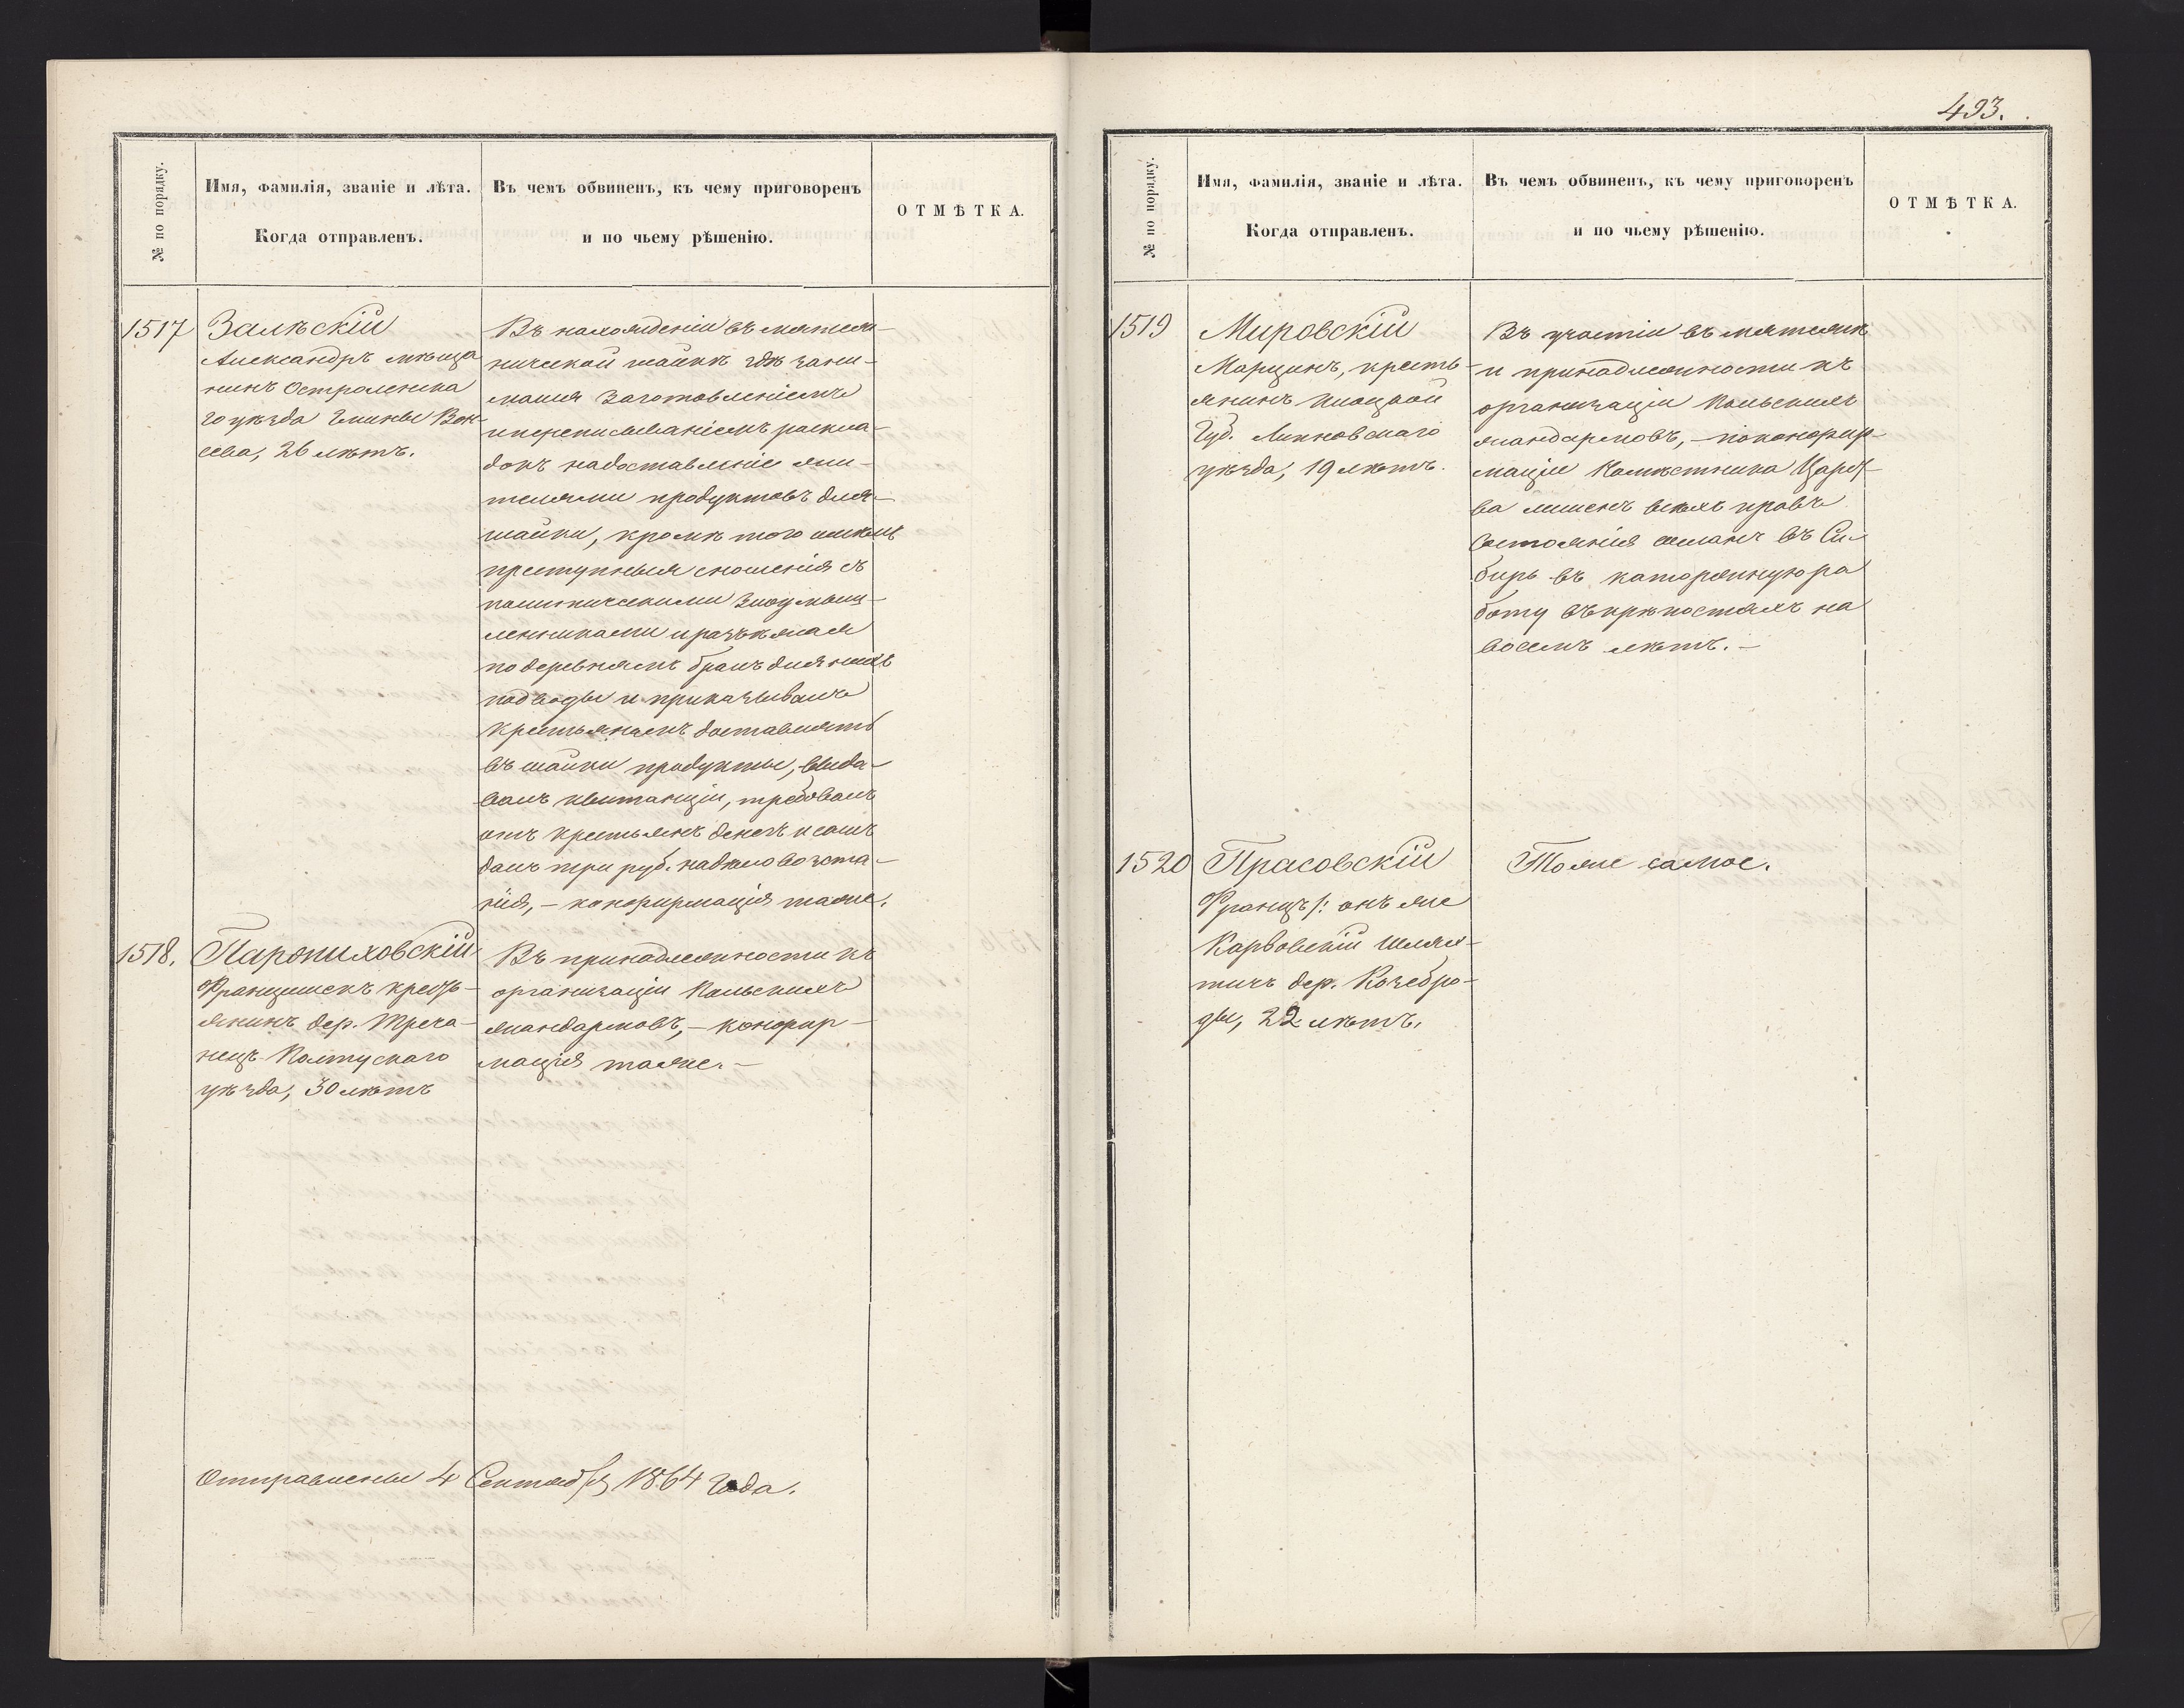 № по порядку.
Имя, фамилія, званіе и лѣта.
Когда отправленъ.
Въ чемъ обвиненъ, къ чему приговоренъ
и по чьему рѣшенію.
ОТМѢТКА.
1517
Залѣскій
Александръ мѣща
нинъ Остроленска
го уѣзда Гмины
сева, 26 лѣтъ.
Въ нахожденіи въ мятеж-
нической шайкѣ гдѣ зани-
мался Заготовленіемъ
и переписываніемъ раскла-
докъ на доставленіе жи-
телями продуктовъ для
шайки, кромѣ того имѣлъ
преступныя сношенія съ
политическими Злоумыш-
ленниками и разъѣзжая
по деревнямъ бралъ для нихъ
подводы и приказывалъ
крестьянамъ доставлять
въ шайки продукты, выда-
валъ квитанціи, требовалъ
отъ крестьянъ денегъ и самъ
далъ три руб. на дѣло возста-
нія, – конфирмація таже.
1518.
Паропиховскій
Францишекъ кресть-
янинъ дер. Треча-
нецъ Полтускаго
уѣзда, 30 лѣтъ
Въ принадлежности къ
организаціи Польскихъ
жандармовъ, – конфир-
мація таже. –
Отправлены 4 Сентября 1864 года.
493.
№ по порядку.
Имя, фамилія, званіе и лѣта.
Когда отправленъ.
Въ чемъ обвиненъ, къ чему приговоренъ
и по чьему рѣшенію.
ОТМѢТКА.
1519
Мировскій
Марцинъ, кресть-
янинъ Плоцкой
Губ. Липновскаго
уѣзда, 19 лѣтъ.
Въ участіи въ мятежѣ
и принадлежности къ
организаціи Польскихъ
жандармовъ, – по конфир-
маціи Намѣстника Царст-
ва лишенъ всѣхъ правъ
Состоянія сосланъ въ Си-
бирь въ каторжную ра
боту въ крѣпостяхъ на
восемь лѣтъ. –
1520
Прасовскій
Францъ /: онъ же
Карвовскій шлях-
тичъ дер. Козебро-
ды, 22 лѣтъ.
Тоже самое.